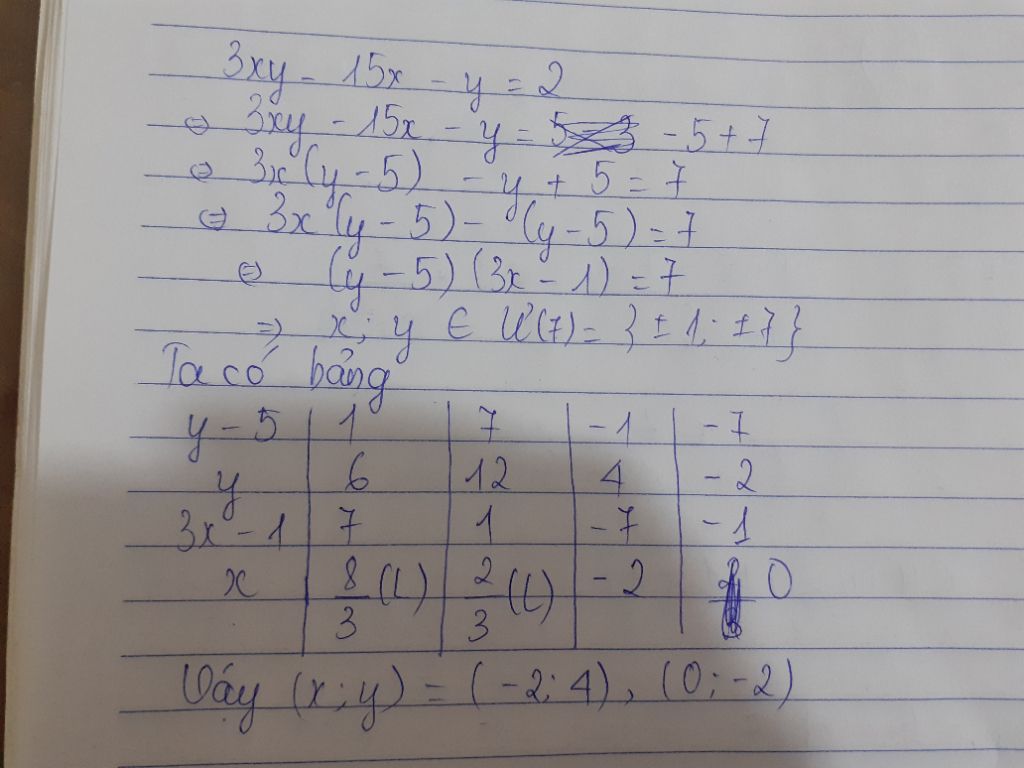 3xy - 15x - y = 2
⇔ 3xy - 15x - y = - 5 + 7
⇔ 3x(y - 5) - y + 5 = 7
⇔ 3x(y - 5) - (y - 5) = 7
⇔ (y - 5)(3x - 1) = 7
⇒ x; y ∈ Ư(7) = {±1; ±7}
Ta có bảng
y - 5 | 1 | 7 | -1 | -7
y | 6 | 12 | 4 | -2
3x - 1 | 7 | 1 | -7 | -1
x | 8/3 (L) | 2/3 (L) | -2 | 0
Vậy (x; y) = (-2; 4), (0; -2)